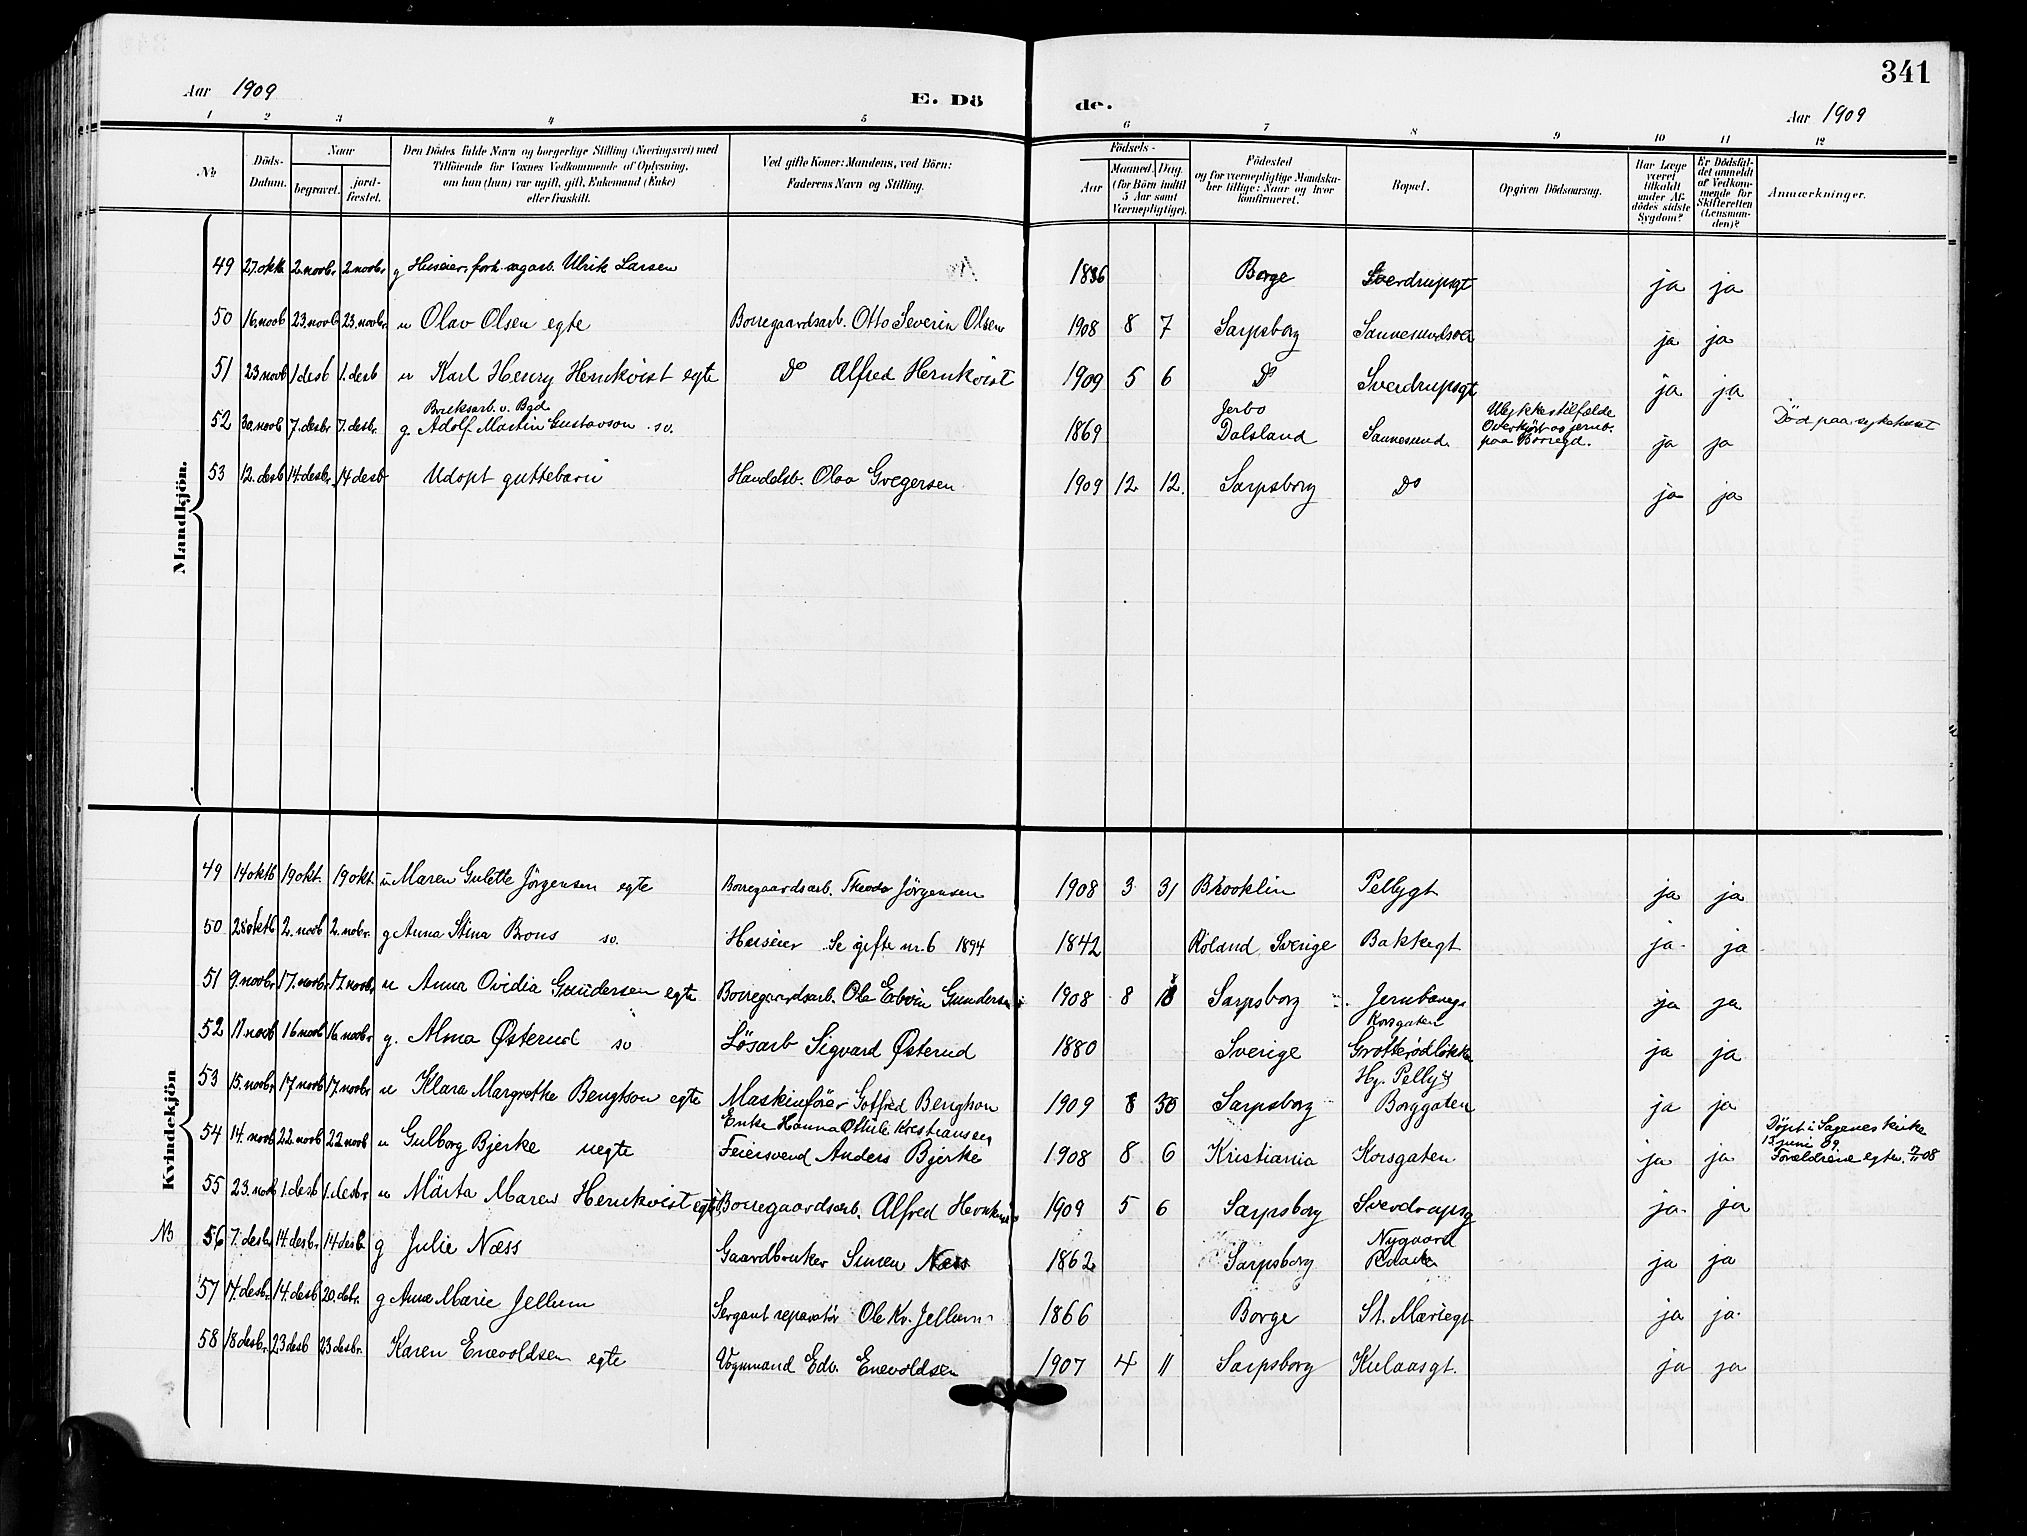 341
Aar 1909
E. Dö
de.
Aar 1909
1 2 3 4 5 6 7 8 9 10 11 12
No
Döds-
Datum.
Naar
begravet.
jord-
fæstet.
Den Dödes fulde Navn og borgerlige Stilling (Næringsvei) med
Tilföiende for Voxnes Vedkommende af Oplysning,
om hun (han) var ugift, gift, Enkemand (Enke)
eller fraskilt.
Ved gifte Koner: Mandens, ved Börn:
Faderens Navn og Stilling.
Födsels-
Aar
Maaned. Dag
(for Börn indtil
5 Aar samt
Værnepligtige).
Födested
og for værnepligtige Mandska-
ber tillige: Naar og hvor
konfirmeret.
Bopæl.
Opgiven Dödsaarsag.
Har Læge
været
tilkaldt
under Af-
dödes sidste
Sygdom?
Er Dödsfal-
det anmeldt
af Vedkom-
mende for
Skifteretten
(Lensman-
den)?
Anmærkninger.
Mandkjön.
49 27. oktb. 2. novbr 2 novbr g Huseier, forh. sagarb. Ulrik Larsen 1836 Borge Sverdrupsgt ja ja
50 16. novb 23. novb 23. novbr u Olav Olsen egte Borregaardsarb. Otto Severin Olsen 1908 8 7 Sarpsborg Sannesundsvei ja ja
51 23 novb 1 desb 1. desb u Karl Henry Hernkvist egte Do Alfred Hernkvist 1909 5 6 Do Sverdrupsgt ja ja
Bruksarb. v. Bgd.
52 30. novb 7. desbr 7. desbr. g. Adolf Martin Gustavson sv. 1869 Jerbo
Dalsland Sannesund Ulykkestilfælde
Overkjört av jernb.
paa Borregd. ja ja Död paa sykehuset
53 12. desb 14. desbr. 14 desb Udöpt guttebarn Handelsb. Olav Gregersen 1909 12 12. Sarpsborg Do ja ja
Kvindekjön
49 14 oktb 19 okt. 19 okt. u Maren Gulette Jörgensen egte Borregaardsarb. Theodor Jörgensen 1908 3 31 Brooklin Pellygt ja ja
50 28 oktb 2. novb 2. nobr. g Anna Stina Brons sv. Huseier Se gifte nr. 6 1894 1842 Röland, Sverige Bakkegt ja. ja
51 9. novbr 17. novbr 17 novbr u Anna Ovidia Gundersen egte Borregaardsarb. Ole Edvin Gundersen 1908 8 Sarpsborg Jernbaneg. ja ja
52 11 novb 16 novb 16. novbr. g. Alma Østerud sv Lösarb Sigvard Østerud 1880 Sverige Korsgaten
Grötterödlökke ja ja
53 15. novbr 17 novb 17. novbr u Klara Margrethe Bengtson egte Maskinförer Gotfred Bengtson 1909 8 30 Sarpsborg Hj. Pelly og
Borggaten ja ja
54 14. novb 22. novb 22 novb u Gulborg Bjerke uegte Enke Hanna Othilie Kristiansen
Feiersvend Anders Bjerke 1908 8 6 Kristiania Korsgaten ja ja Döpt i Sagenes kirke
13 juni 09.
Forældrene egtev. 08
55 23. novb 1. desb 1. desbr. u Märta Maren Hernkvist egte Borregaardsarb. Alfred Hernkvist 1909 5 6 Sarpsborg Sverdrupsg ja. ja
NB 56 7. desbr 14. desbr. 14 desb g Julie Næss Gaardbruker Simen Næss 1862 Sarpsborg Nygaard
Raade ja ja
57 14. desbr. 14. desb 20. debr. g Anna Marie Jellum Sergant reparatör Ole Kr. Jellum 1866 Borge St. Mariegt ja ja.
58 18 desbr. 23 desb 23 desbr. Karen Enevoldsen egte Vognmand Edv. Enevoldsen 1907 4 11 Sarpsborg Kulaasgt. ja ja